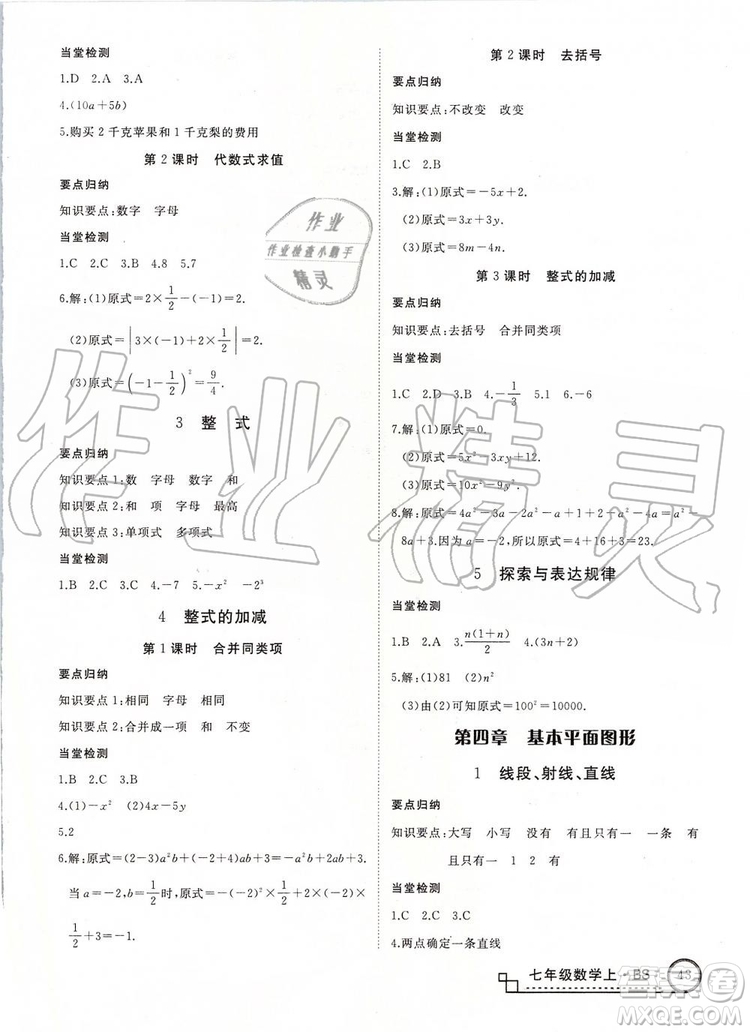 当堂检测
1.D 2.A 3.A
4.(10a+5b)
5.购买2千克苹果和1千克梨的费用
第2课时 代数式求值
要点归纳
知识要点:数字 字母
当堂检测
1.C 2.B 3.B 4.8 5.7
6.解:(1)原式=2×1/2-(-1)=2.
(2)原式=|3×(-1)+2×1/2|=2.
(3)原式=(-1-1/2)²=9/4.
3 整 式
要点归纳
知识要点1:数 字母 数字 和
知识要点2:和 项 字母 最高
知识要点3:单项式 多项式
当堂检测
1.B 2.C 3.C 4.-7 5.-2³
4 整式的加减
第1课时 合并同类项
要点归纳
知识要点1:相同 字母 相同
知识要点2:合并成一项 和 不变
当堂检测
1.B 2.C 3.D
4.(1)-x² (2)4x-5y
5.2
6.解:原式=(2-3)a²b+(-1+3)ab+3=-a²b+2ab+3.
当a=-2,b=1/2时,原式=-(-2)²×1/2+2×(-2)×
1/2+3=-1.
第2课时 去括号
要点归纳
知识要点:不改变 改变
当堂检测
1.C 2.B
3.解:(1)原式=-5x+2.
(2)原式=3x+3y.
(3)原式=8m-4n.
第3课时 整式的加减
要点归纳
知识要点:去括号 合并同类项
当堂检测
1.C 2.D 3.D 4.-1/3 5.1 6.-6
7.解:(1)原式=0.
(2)原式=3x,+2.
(3)原式=10x²-9y².
8.解:原式=4a²-3a-2a²-a+1+2-a²+4a=a²-
8a+3.因为a=-2,所以原式=4+16+3=23.
5 探索与表达规律
当堂检测
1.B 2.A 3.n(1+n)/2 4.(3n+2)
5.解:(1)81 (2)n²
(3)由(2)可知原式=100²=10000.
第四章 基本平面图形
1 线段、射线、直线
要点归纳
知识要点:大写 小写 没有 有且只有一 一条 有
且只有一 1 2 有
当堂检测
1.C 2.C 3.C
4.两点确定一条直线
七年级数学上·BS
43
作业
作业检查小助手
精灵
作业精灵
答案圈
MXQE.COM